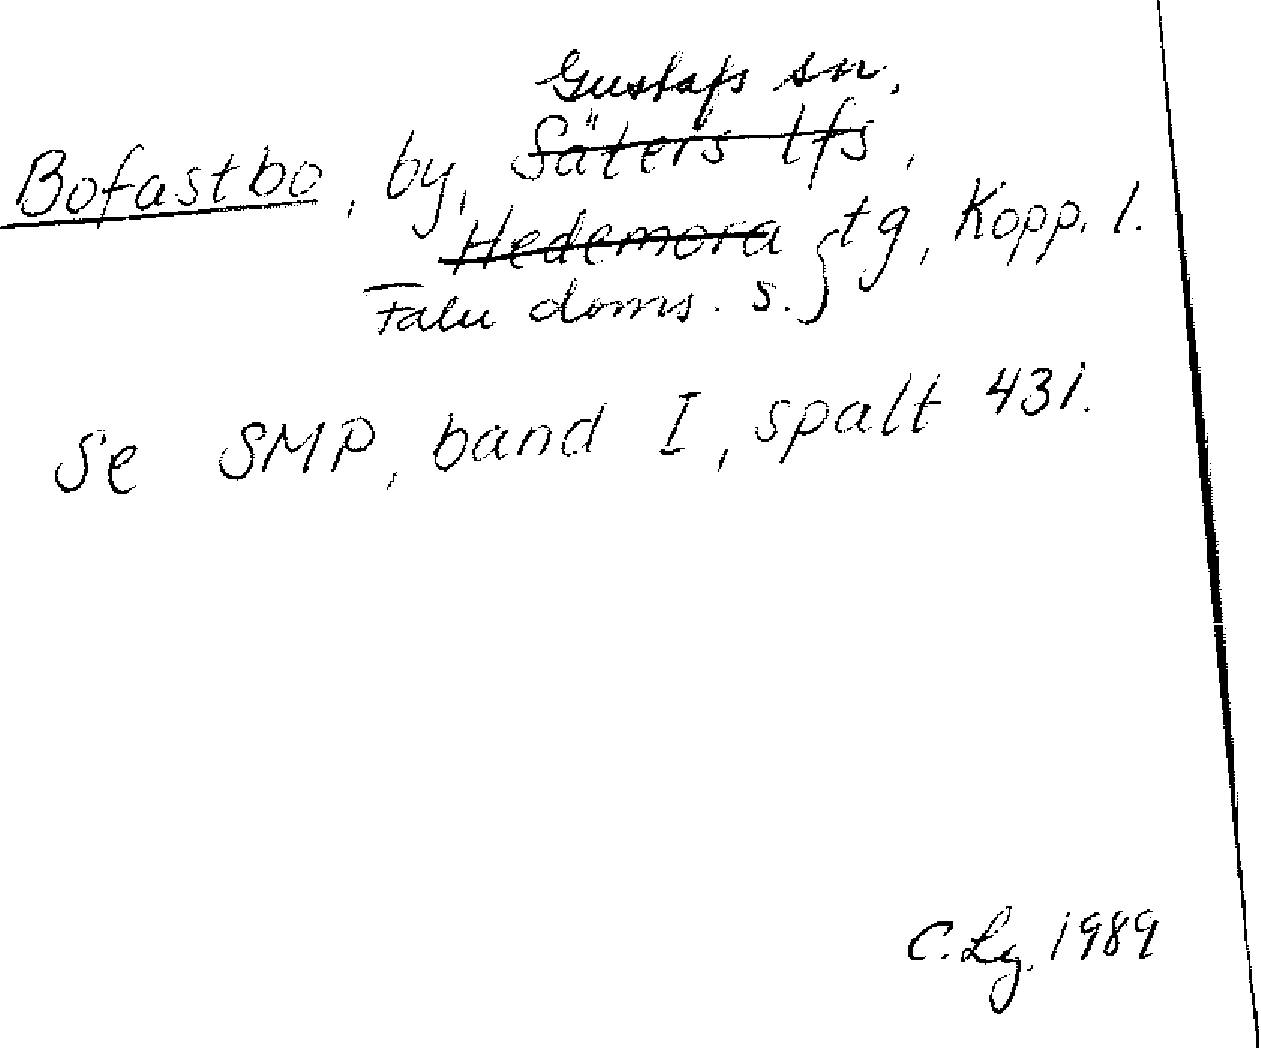 Gustafs sn.
Bofastbo, by, Säters lfs,
Hedemora } tg, Kopp. l.
Falu doms. s.
Se SMP, band I, spalt 431.
C. Lg. 1989